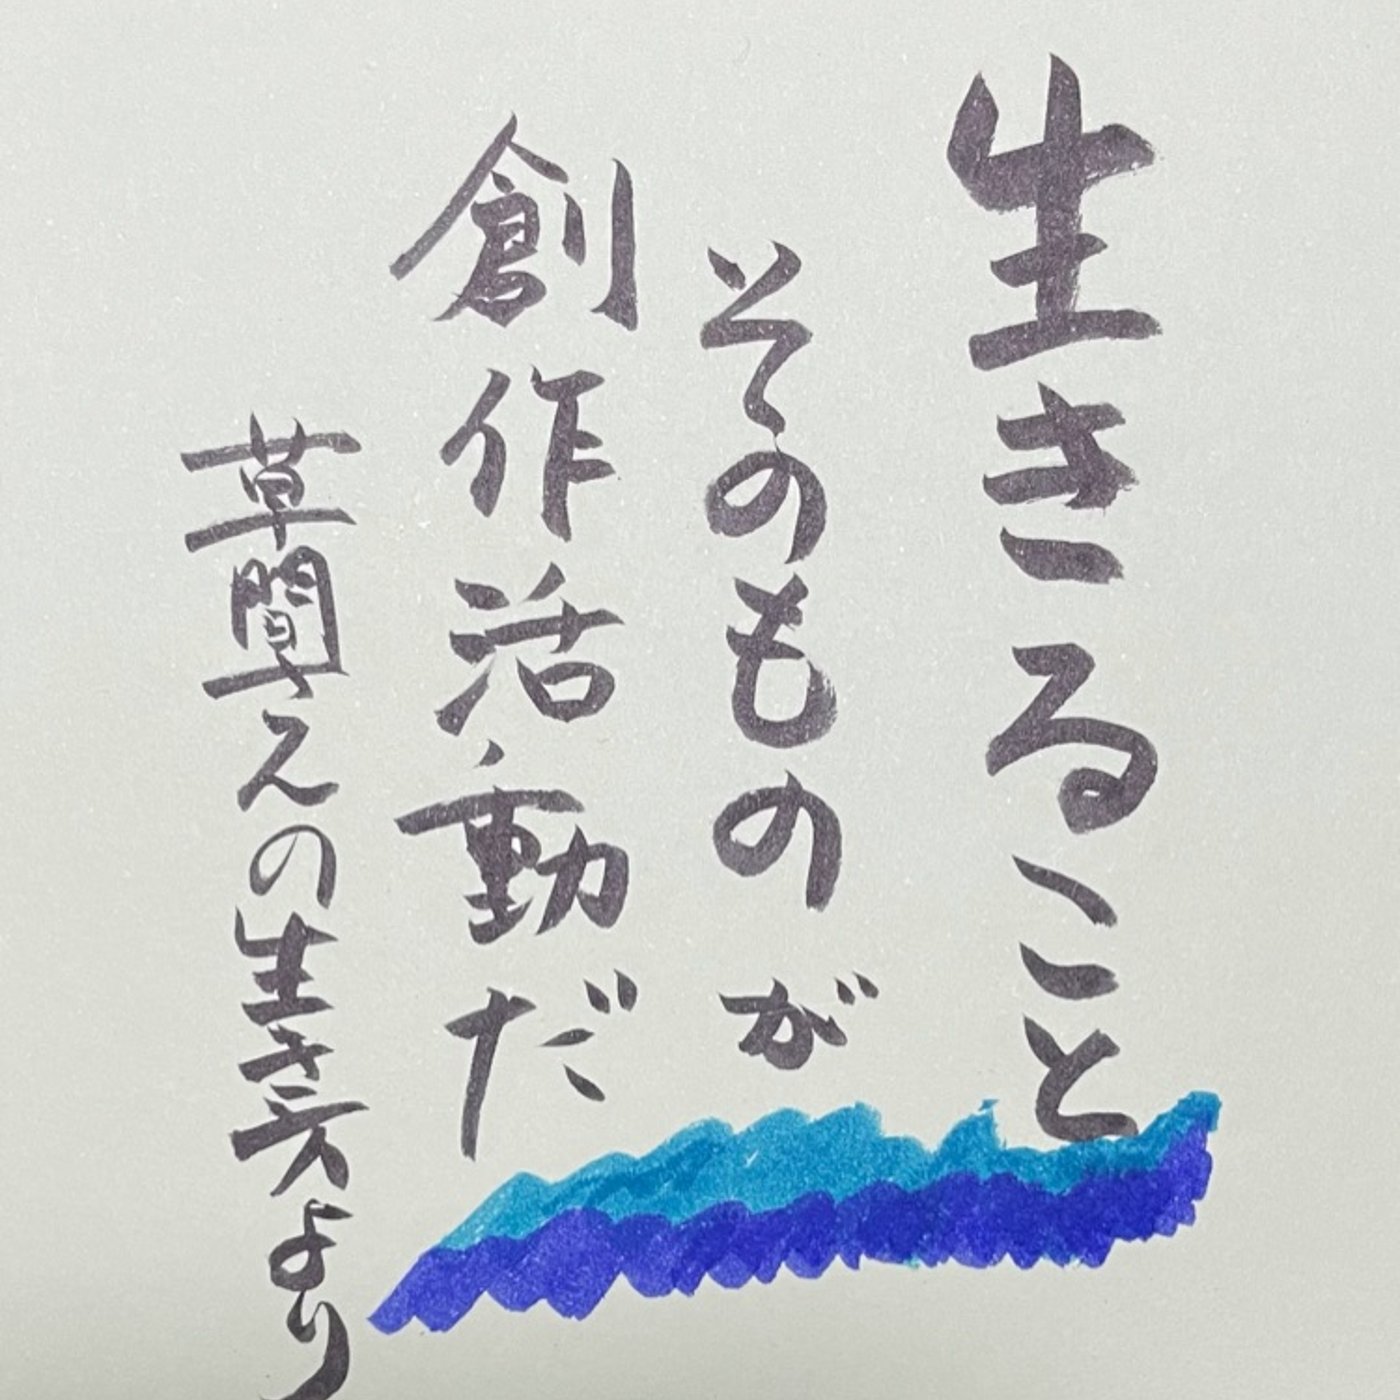 生きること
そのものが
創作活動だ
草間さえの生き方より